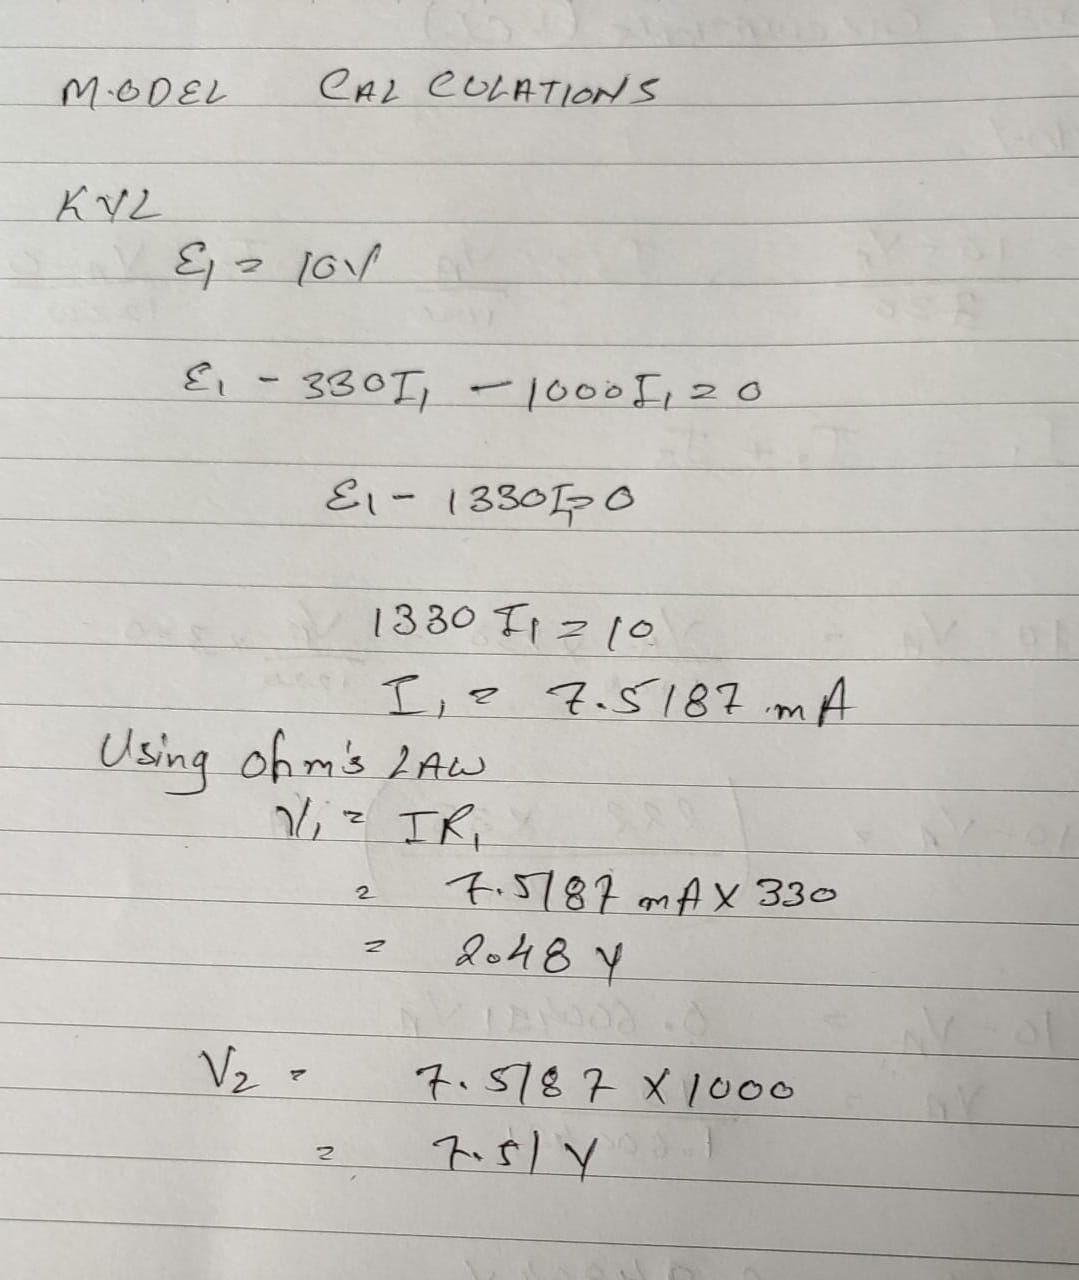 MODEL CALCULATIONS
KVL
ε₁ = 10V
ε₁ - 330I₁ - 1000I₁ = 0
ε₁ - 1330I₁ = 0
1330 I₁ = 10
I₁ = 7.5187 mA
Using ohm's LAW
V₁ = IR₁
= 7.5187 mA X 330
= 2.48 V
V₂ = 7.5187 X 1000
= 7.51 V